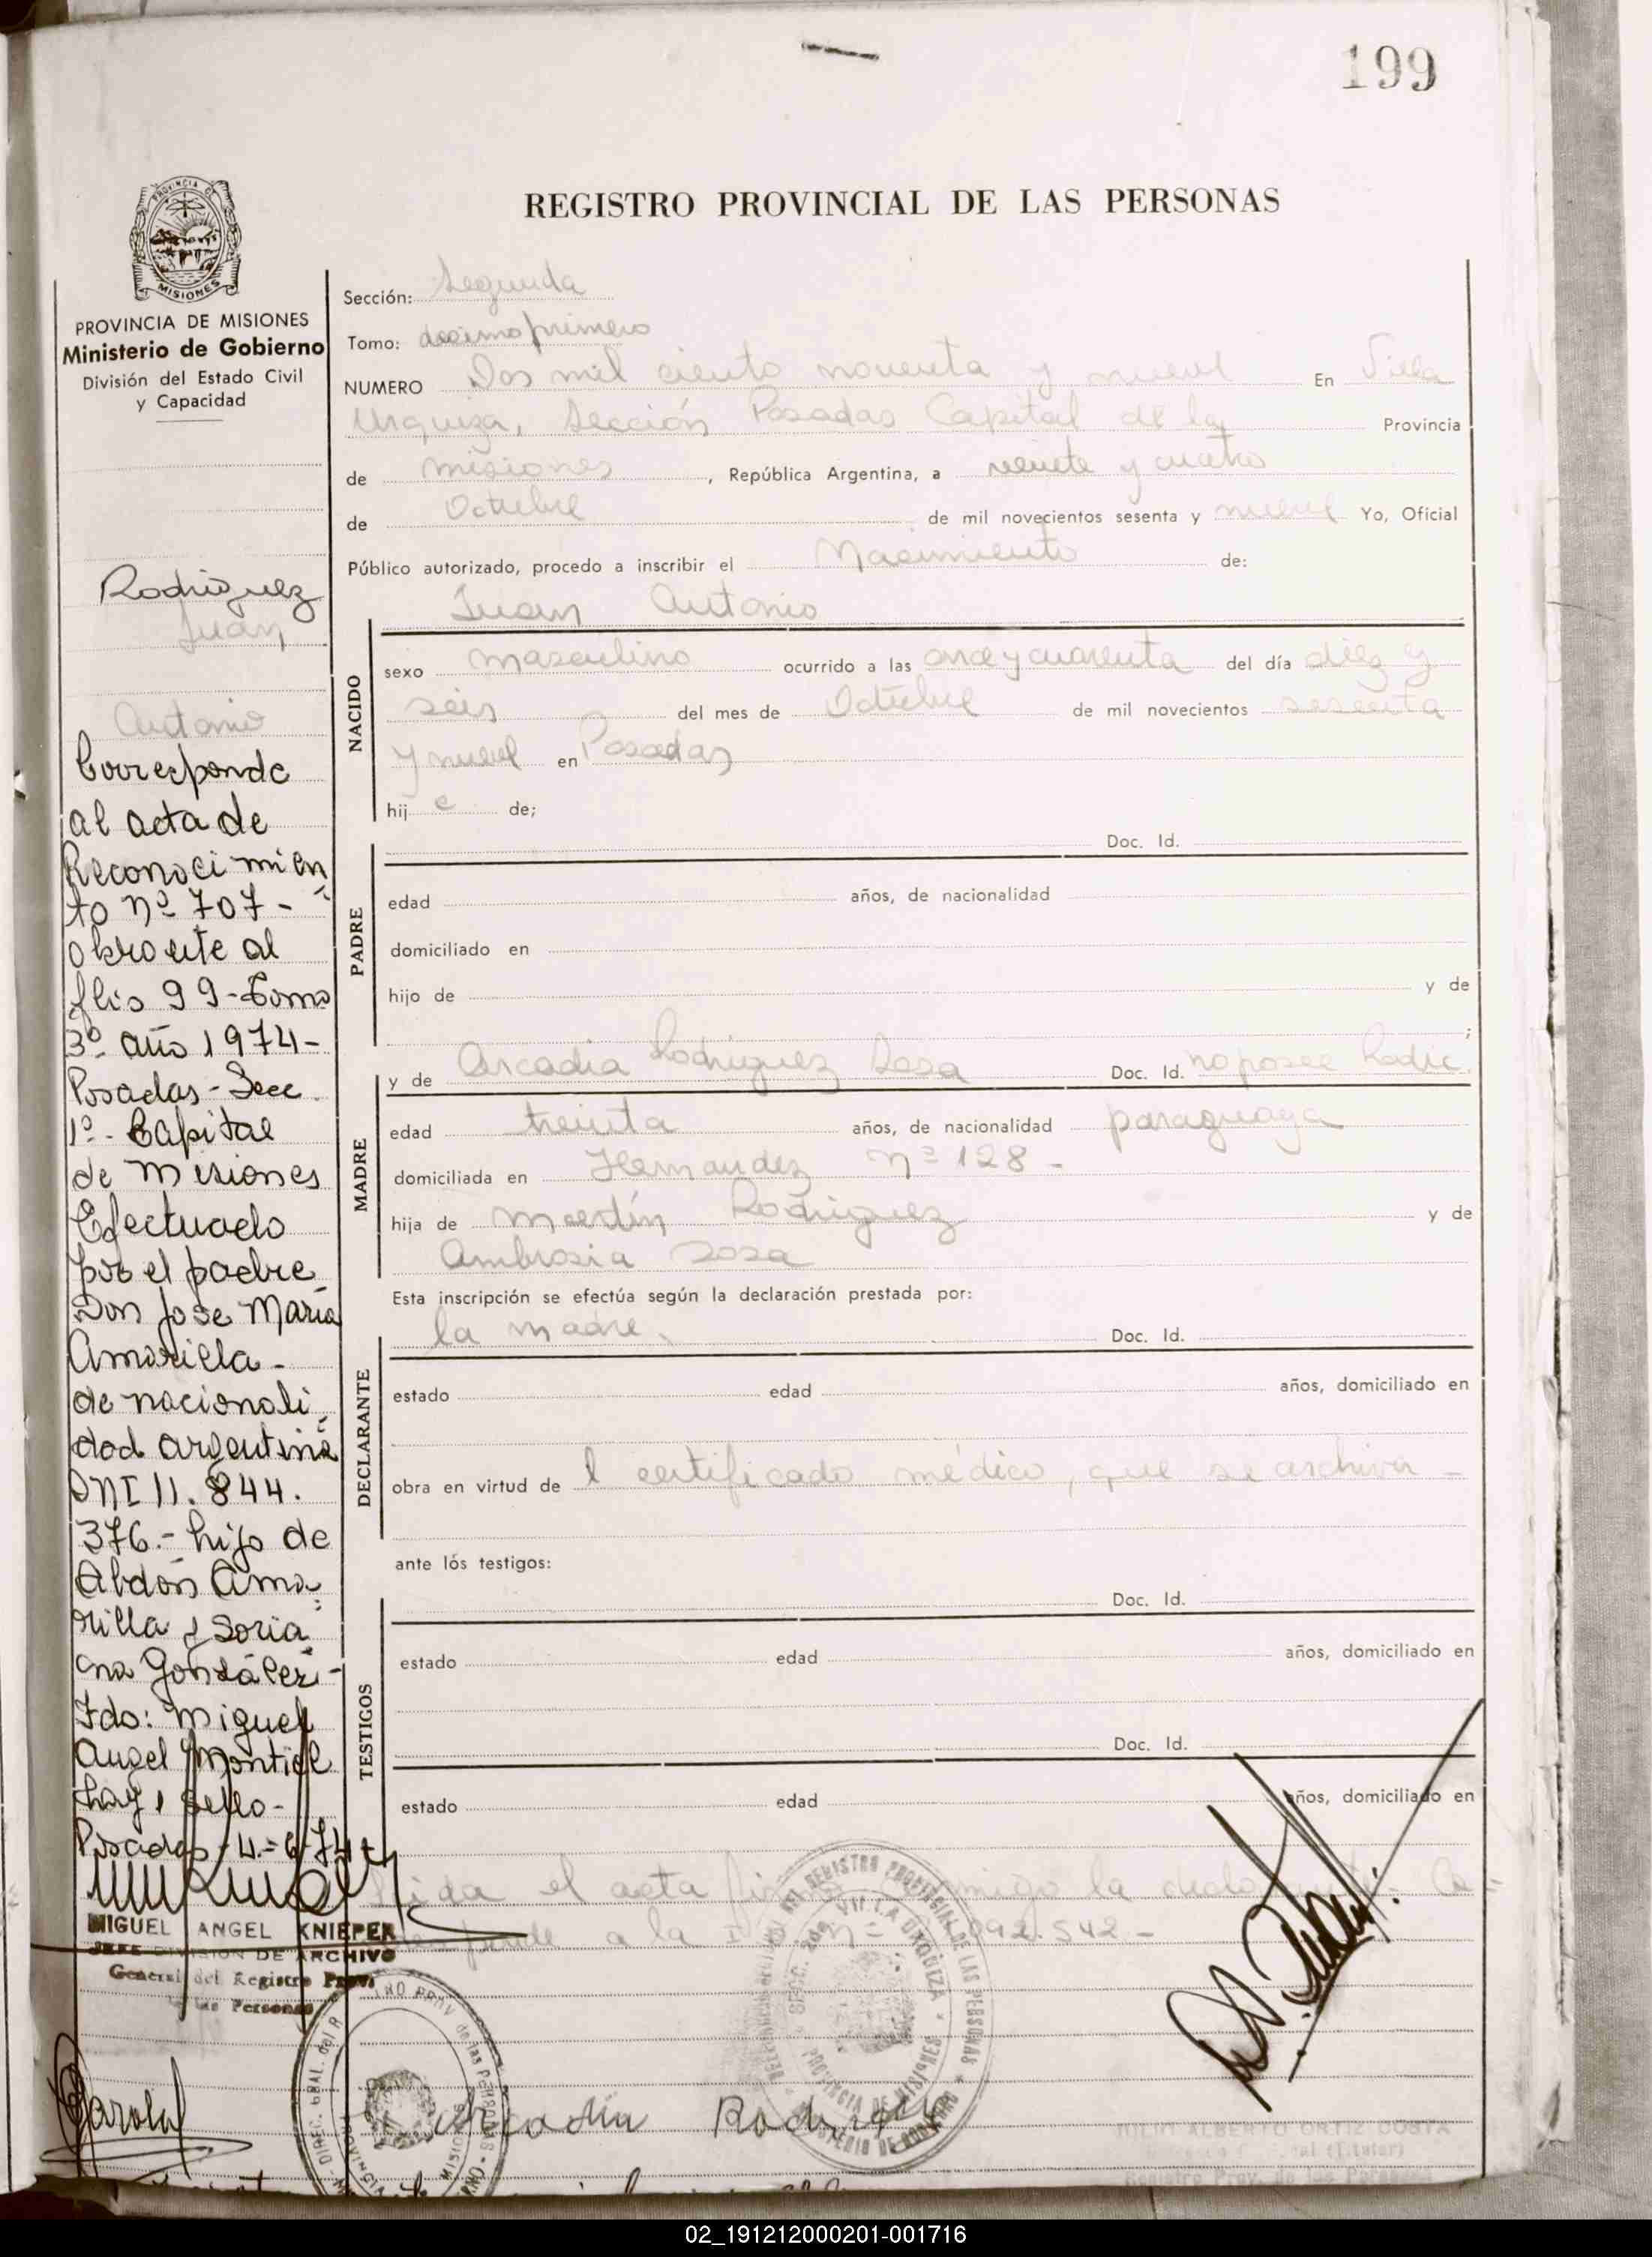 199
REGISTRO PROVINCIAL DE LAS PERSONAS
PROVINCIA DE
MISIONES
PROVINCIA DE MISIONES
Ministerio de Gobierno
División del Estado Civil
y Capacidad
Rodriguez
Juan
Antonio
Corresponde
al acta de
Reconocimien
to nº 707-
obrante al
flio 99-Tomo
3º año 1974-
Posadas-Secc.
1º- Capital
de Misiones
Efectuado
por el padre
Don Jose Maria
Amarilla-
de nacionali
dad argentina
DNI 11.844.
376.- hijo de
Abdón Ama
rilla y Soria
na González-
Fdo: Miguel
Angel Montiel
hay 1 sello-
Posadas-4-6-74
MIGUEL ANGEL KNIEPER
JEFE DIVISION DE ARCHIVO
General del Registro Prov.
de las Personas
Sección: Segunda
Tomo: decimo primero
NUMERO Dos mil ciento noventa y nueve En Villa
Urquiza, Sección Posadas Capital de la Provincia
de misiones, República Argentina, a veinte y cuatro
de Octubre de mil novecientos sesenta y nueve Yo, Oficial
Público autorizado, procedo a inscribir el Nacimiento de:
Juan Antonio
NACIDO
sexo masculino ocurrido a las once y cuarenta del día diez y
seis del mes de Octubre de mil novecientos sesenta
y nueve en Posadas
hij o de;
Doc. Id.
PADRE
edad años, de nacionalidad
domiciliado en
hijo de y de
;
y de Arcadia Rodriguez Sosa Doc. Id. no posee Radic.
MADRE
edad treinta años, de nacionalidad paraguaya
domiciliada en Hernandez nº 128-
hija de Martín Rodriguez y de
Ambrosia Sosa
Esta inscripción se efectúa según la declaración prestada por:
la madre. Doc. Id.
DECLARANTE
estado edad años, domiciliado en
obra en virtud de l certificado médico, que se archiva-
ante lós testigos:
Doc. Id.
TESTIGOS
estado edad años, domiciliado en
Doc. Id.
estado edad años, domiciliado en
Leida el acta conmigo la Co-
rresponde a la 092.542.-
SECC. 2da VILLA URQUIZA
REGISTRO PROVINCIAL DE LAS PERSONAS
PROVINCIA DE MISIONES
MINISTERIO DE GOBIERNO
Arcadia Rodriguez
JULIO ALBERTO ORTIZ COSTA
02_191212000201-001716